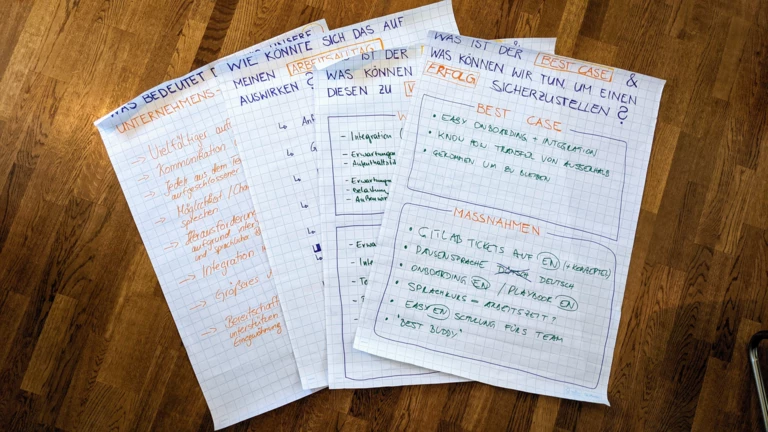 WAS BEDEUTET
UNTERNEHMENS-
-> Vielfältiges
-> Kommunikation
-> Jeder aus dem
aufgeschlossener
-> Möglichkeit /
sprechen
-> Herausforderung
aufgrund
und sprachlicher
-> Integration
-> Größeres
-> Bereitschaft
unterstützen
Eingewöhnung
WIE KÖNNTE SICH DAS AUF
MEINEN ARBEITSALLTAG
AUSWIRKEN?
IST DER
WAS KÖNNEN
DIESEN ZU
- Integration (
- Erwartungen
- Aufenthaltsti
- Erwartungen
- Belastung
- Außenwar
- Erwa
- Inte
WAS IST DER BEST CASE &
WAS KÖNNEN WIR TUN, UM EINEN
ERFOLG SICHERZUSTELLEN?
BEST CASE
• EASY ONBOARDING + INTEGRATION
• KNOW HOW TRANSFER VON AUSSERHALB
• GEKOMMEN UM ZU BLEIBEN
MASSNAHMEN
• GITLAB TICKETS AUF EN
• PAUSENSPRACHE DEUTSCH
• ONBOARDING EN / PLAYBOOK EN
• SPRACHKURS = ARBEITSZEIT?
• EASY EN SCHULUNG FÜRS TEAM
• "BEST BUDDY"